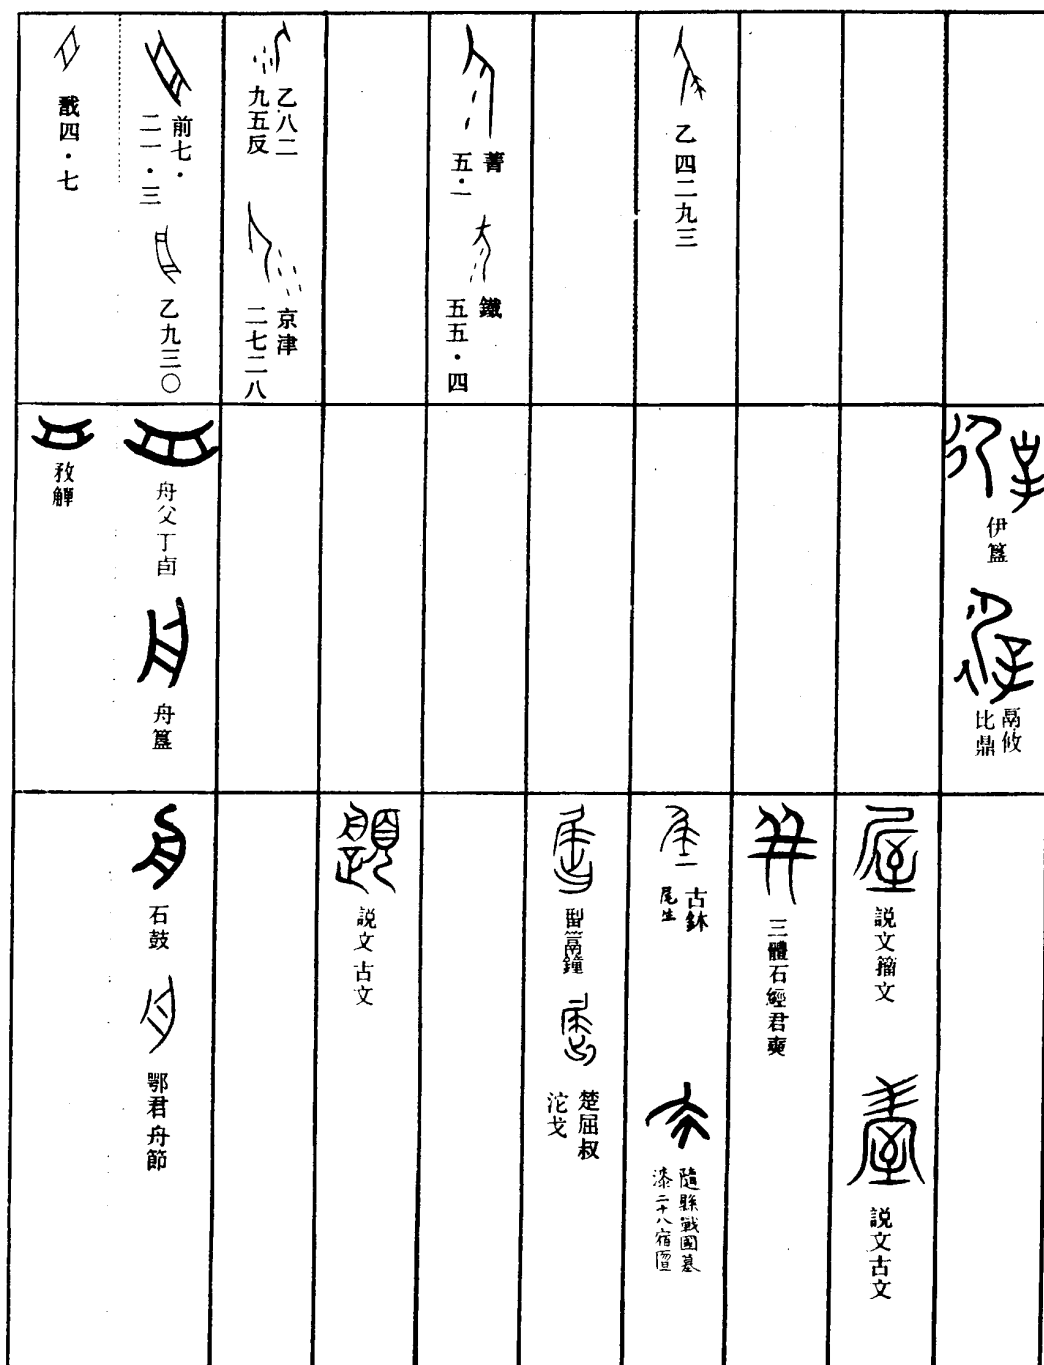 伊簋
鬲攸
比鼎
説文籀文
説文古文
三體石經君奭
乙四二九三
古鉥
尾生
隨縣戰國墓
漆二十八宿匫
楚屈叔
沱戈
菁
五·一
鐵
五五·四
説文古文
乙八二
九五反
京津
二七二八
前七·
二一·三
乙九三〇
舟父丁卣
舟簋
石鼓
鄂君舟節
戩四·七